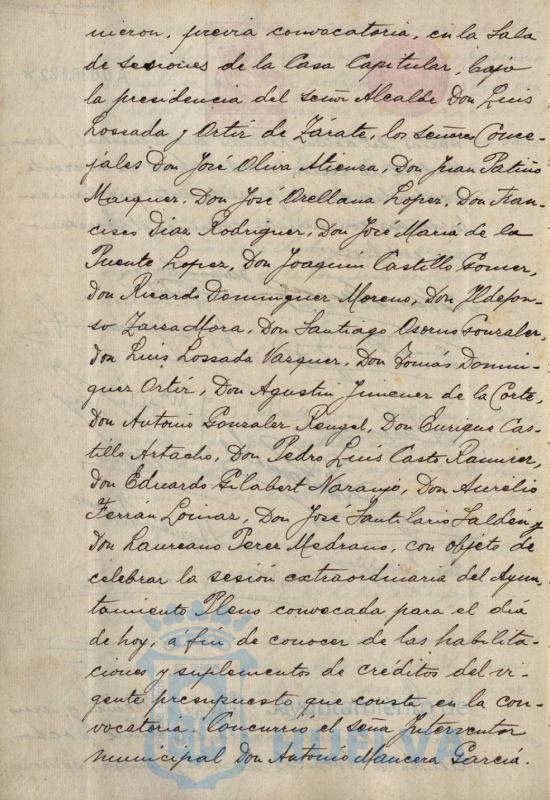 nieron, previa convocatoria, en la Sala
de sesiones de la Casa Capitular, bajo
la presidencia del señor Alcalde Don Luis
Lossada y Ortiz de Zárate, los señores Conce-
jales Don José Oliva Atienza, Don Juan Patiño
Marquez, Don José Orellana Lopez, Don Fran-
cisco Diaz Rodriguez, Don José María de la
Puente Lopez, Don Joaquin Castillo Gomez,
Don Ricardo Dominguez Moreno, Don Ildefon-
so Zarza Mora, Don Santiago Osorno Gonzalez,
Don Luis Lossada Vazquez, Don Tomás Domin-
guez Ortiz, Don Agustin Jimenez de la Corte,
Don Antonio Gonzalez Rengel, Don Enrique Cas-
tillo Artacho, Don Pedro Luis Casto Ramirez,
Don Eduardo Gilabert Naranjo, Don Aurelio
Ferrán Don José
Don Laureano Perez Medrano, con objeto de
celebrar la sesión extraordinaria del Ayun-
tamiento Pleno convocada para el día
de hoy, á fin de conocer de las habilita-
ciones y suplementos de créditos del vi-
gente presupuesto que consta en la con-
vocatoria. Concurrió el señor Interventor
municipal Don Antonio Mancera García.
Ayuntamiento de
HUELVA